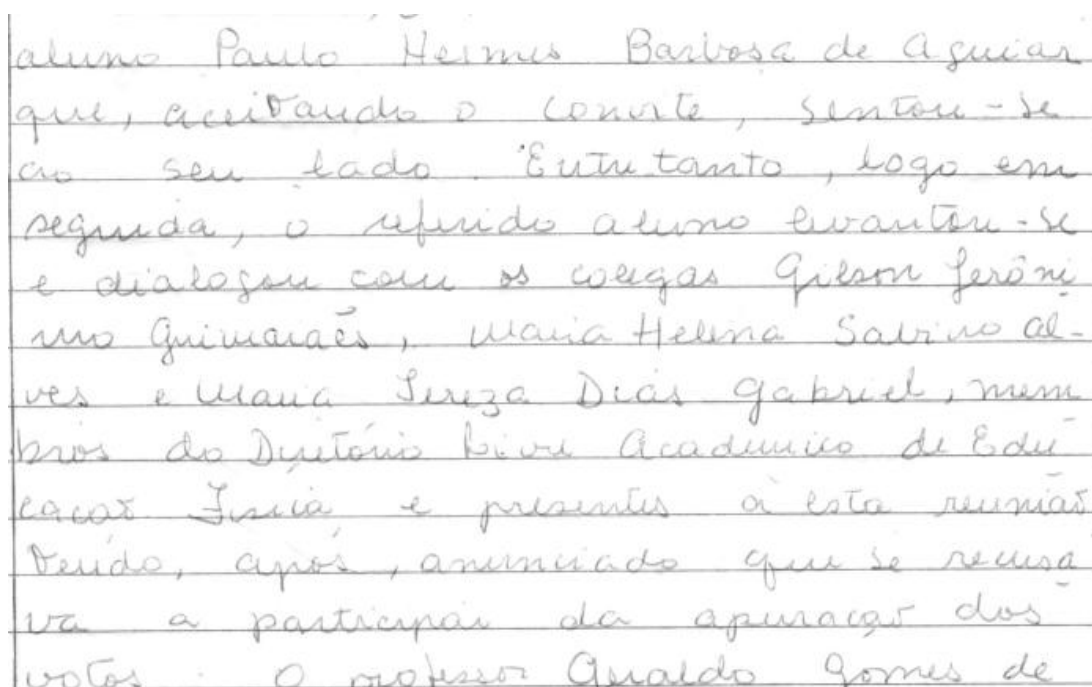 aluno Paulo Hermes Barbosa de Aguiar
que, aceitando o convite, sentou-se
ao seu lado. Entretanto, logo em
seguida, o referido aluno levantou-se
e dialogou com os colegas Gilson Jerôni
mo Guimarães, Maria Helena Sabino Al-
ves e Maria Tereza Dias Gabriel, mem
bros do Diretório Livre Acadêmico de Edu
cação Física e presentes à esta reunião
tendo, após, anunciado que se recusa
va a participar da apuração dos
votos. O professor Geraldo Gomes de